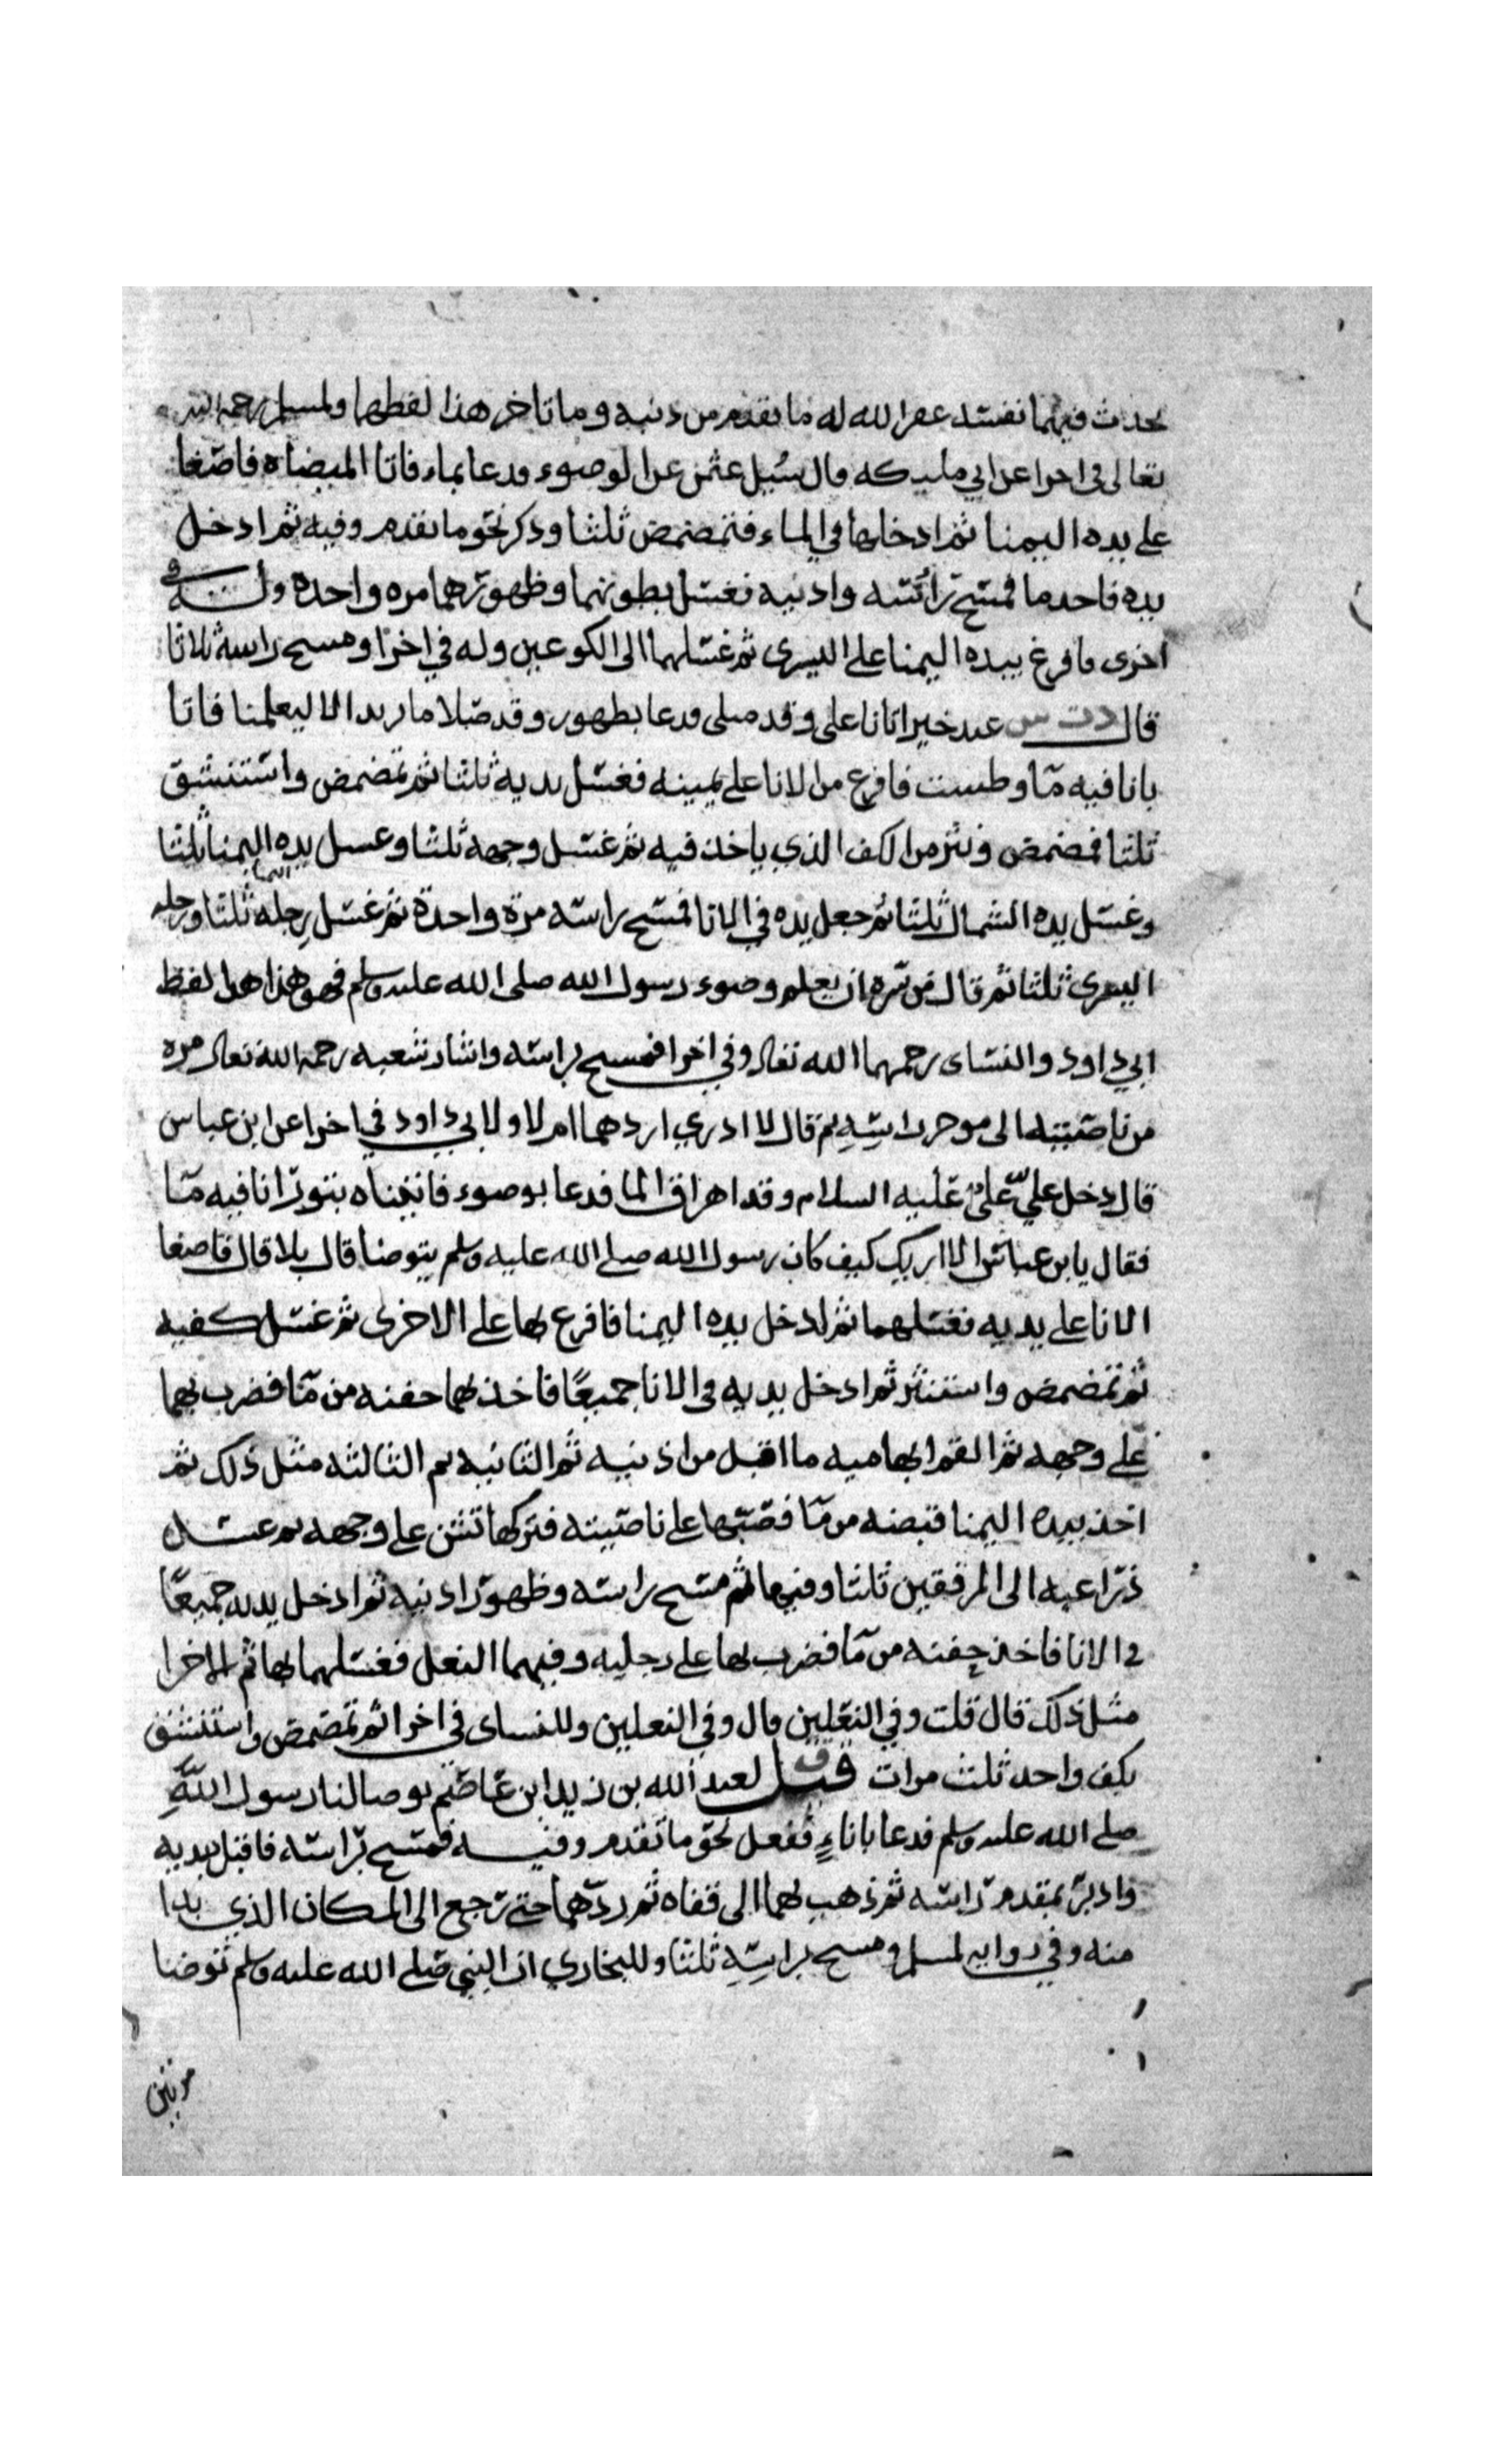 يحدث فيهما نفسه غفر الله له ما تقدم من ذنبه وما تاخر هذا لفظهما ولمسلم رحمه الله
تعالى في اخرا عن ابي مليكه قال سُيل عثمن عن الوضوء فدعا بماء فاتا الميضاه فاصغا
على يده اليمنا ثم ادخلها في الماء فتمضمض ثلثا وذكر نحو ما تقدم وفيه ثم ادخل
يده فاخد ما فمسح براسه واذنيه فغسل بطونهما وظهورهما مره واحده وله في
اخرى فافرغ بيده اليمنا على اليسرى ثم غسلهما الى الكوعين وله في اخرا ومسح راسه ثلاثا
قال د ت س عبد خير اتانا علي وقد صلى فدعا بطهور وقد صلا ما يريد الا ليعلمنا فاتا
بانا فيه ما وطست فافرغ من الانا على يمينه فغسل يديه ثلثا ثم تمضمض واستنشق
ثلثا فمضمض ونثر من الكف الذي ياخذ فيه ثم غسل وجهه ثلثا وغسل يده اليمنا ثلثا
وغسل يده الشمال ثلثا ثم جعل يده في الانا فمسح براسه مرة واحدة ثم غسل رجله اليمنا ثلثا ورجله
اليسرى ثلثا ثم قال من سره ان يعلم وضوء رسول الله صلى الله عليه وسلم فهو هذا هذا لفظ
ابي داود والنساى رحمهما الله تعالى وفي اخرا فمسح براسه واشار شعبه رحمه الله تعالى مره
من ناصيته الى موخر راسِهِ ثم قال لا ادري اردهما ام لا ولابي داود في اخرا عن ابن عباس
قال دخل عليّ عليٌ عليه السلام وقد اهراق الما فدعا بوضوء فاتيناه بتور انا فيه ما
فقال يابن عباس الا اريك كيف كان رسول الله صلى الله عليه وسلم يتوضا قال بلا قال فاصغا
الانا على يديه فغسلهما ثم ادخل يده اليمنا فافرغ بها على الاخرى ثم غسل كفيه
ثم تمضمض واستنثر ثم ادخل يديه في الانا جميعًا فاخذ بهما حفنه من ما فضرب بهما
على وجهه ثم القم ابهاميه ما اقبل من اذنيه ثم الثانيه ثم الثالثه مثل ذلك ثم
اخذ بيده اليمنا قبضه من ما فصبها على ناصيته فتركها تشن على وجهه ثم غسل
ذراعيه الى المرفقين ثلثا وفيها ثم مسح راسه وظهور اذنيه ثم ادخل يديه جميعًا
في الانا فاخذ حفنه من ما فضرب بها على رجليه وفيهما النعل فغسلهما بها ثم الاخرا
مثل ذلك قال قلت وفي النعلين قال وفي النعلين وللنساى في اخرا ثم تمضمض واستنشق
بكف واحد ثلث مرات ق قيل لعبد الله بن زيد ابن عاصم توضا لنا رسول اللهِ
صلى الله عليه وسلم فدعا باناءٍ ففعل نحو ما تقدم وفيه فمسح براسه فاقبل بيديه
وادبر بمقدم راسه ثم ذهب بهما الى قفاه ثم ردّهما حتى رجع الى المكان الذي بدا
منه وفي روايه لمسلم ومسح براسِهِ ثلثا وللبخاري ان النبي صلى الله عليه وسلم توضا
مرتين